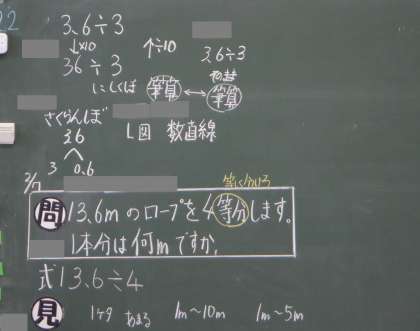 3.6÷3
↓×10 ↑÷10
36÷3
3.6÷3
筆算 ↔ 筆算
さくらんぼ
3.6
3 0.6
L図 数直線
2/7
等しく分ける
問 13.6mのロープを4等分します。
1本分は何mですか。
式 13.6÷4
見 1ケタ あまる 1m〜10m 1m〜5m